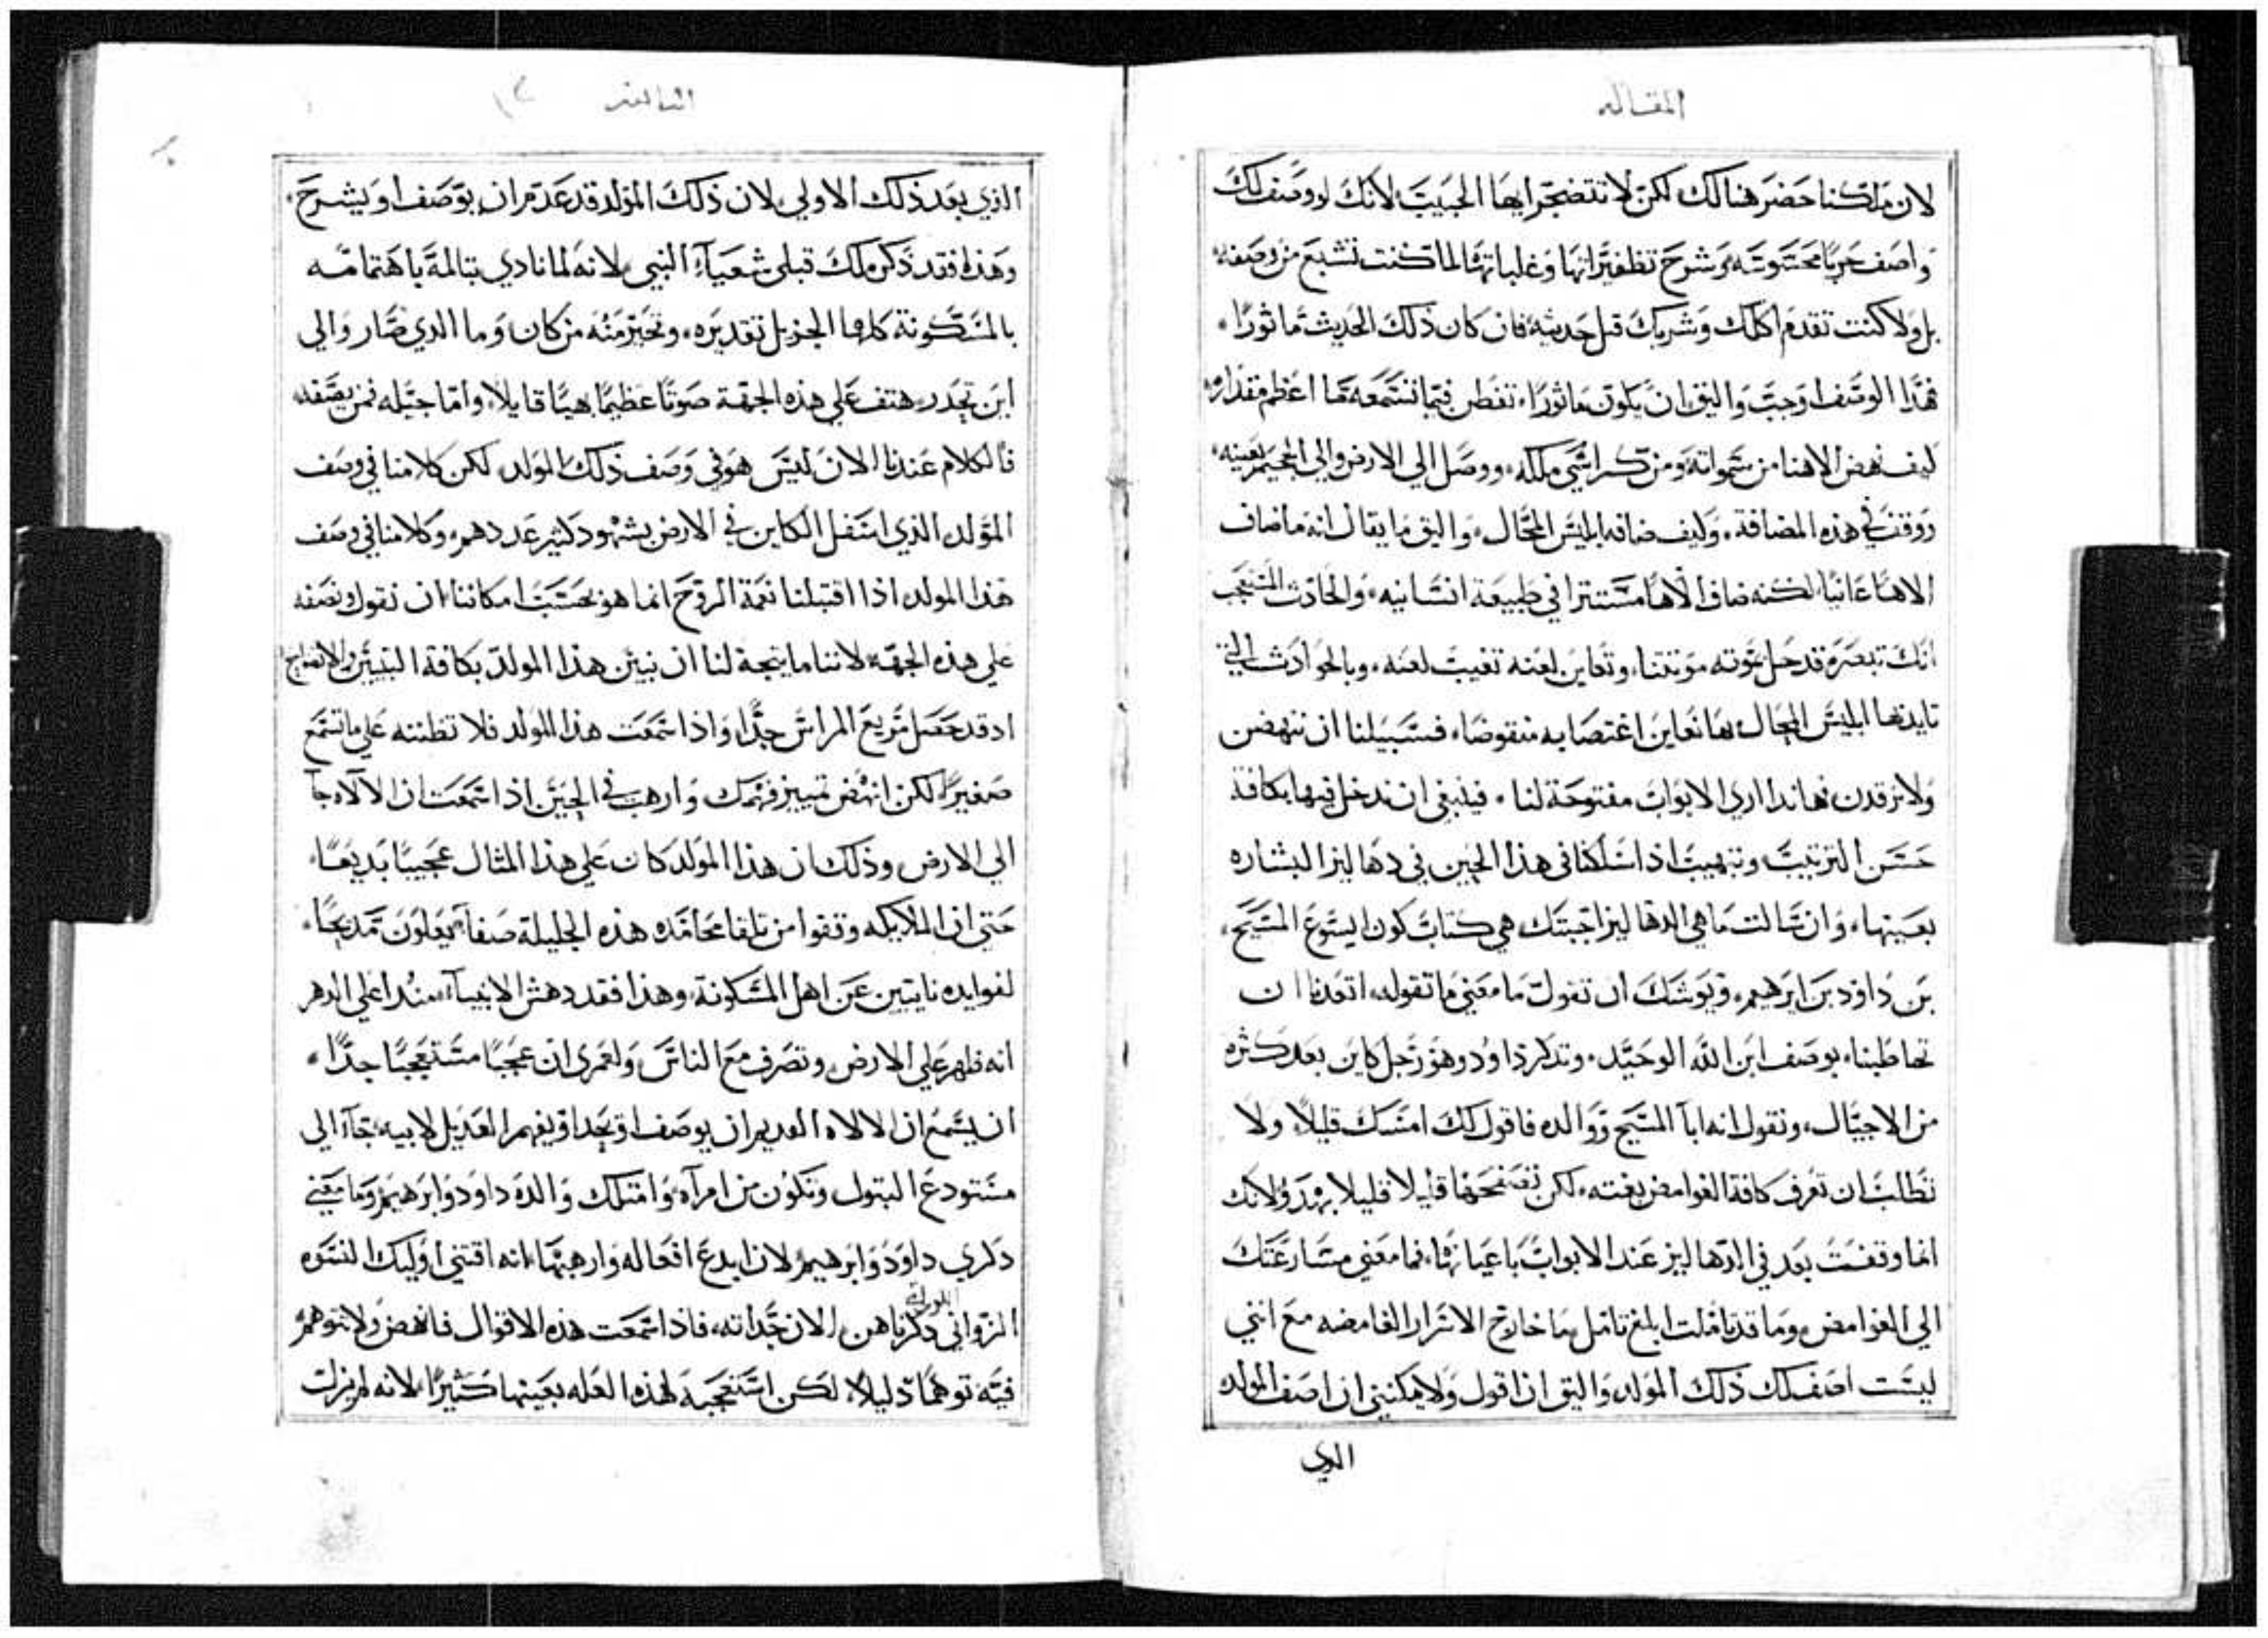 المقاله
لان ملكنا حضر هنالك لكن لا تتضجر ايها الحبيب لانك لو وصف لك
واصف حربًا محسوسه وشرح تظفيراتها وغلباتها لما كنت تشبع من وصفه
بل ولا كنت تقدم اكلك وشربك قبل حديثه فان كان ذلك الحديث ماثورًا
فهذا الوصف اوجب واليق ان يكون ماثورًا، تفطن فيما تسمعه ما اعظم مقداره
كيف نهض الاهنا من سمواته ومن كراسي ملكه، ووصل الي الارض والي الجحيم بعينه
ووقف في هذه المضافة، وكيف ضافه ابليس المحال، واليق ما يقال انه ما ضاف
الاهًا عانيًا لكنه ضاف الاهًا مستترا في طبيعة انسانيه، والحادث المستعجب
انك تبصره قد حل بموته موتنا، وتعاين لعنه تغيب لعنه، وبالحوادث التي
تايد بها ابليس المحال بها نعاين اغتصابه منقوضا، فسبيلنا ان ننهض
ولا نرقدن فهاندا اري الابواب مفتوحة لنا، فينبغي ان ندخل فيها بكافة
حسن الترتيب وتهيب اذا سلكنا في هذا الحين في دهاليز البشاره
بعينها، وان سالت ما هي الدهاليز اجبتك هي كتاب كون ايسوع المسيح
بن داود بن ابرهيم، ويوشك ان تقول ما معني ما تقوله، اتعدنا ان
تخاطبنا، بوصف ابن الله الوحيد، وتذكر داود وهو رجل كاين بعد كثره
من الاجيال، وتقول انه ابا المسيح ووالده فاقول لك امسك قليلاً ولا
تطالب ان تعرف كافة الغوامض بغته، لكن تصفحها قليلا قليلا برويد ولانك
انما وقفت بعد في الدهاليز عند الابواب باعيانها، فما معني مسارعتك
الي الغوامض وما قد تاملت ابلغ تامل ما خارج الاسرار الغامضه مع انني
ليست اصف لك ذلك المولد واليق ان اقول ولا يمكنني ان اصف المولد
الدي
الثانيه
الذي بعد ذلك الاولي، لان ذلك المولد قد عدم ان يوصف او يشرح
وهذا فقد ذكره لك قبلي شعياء النبي لانه لما نادي بتالمه باهتمامه
بالمسكونة كلها الجزيل تقديره، وتحير منه من كان وما الذي صار والي
اين تحدر هتف علي هذه الجهة صوتًا عظيمًا بهيًا قايلاً، واما جيله فمن يصفه
فالكلام عندنا الان ليس هو في وصف ذلك المولد لكن كلامنا في وصف
المولد الذي اسفل الكاين في الارض بشهود كثير عددهم، وكلامنا في وصف
هذا المولد اذا اقتبلنا نعمة الروح انما هو بحسب امكاننا ان نقول ونصفه
علي هذه الجهة لاننا ما يتجة لنا ان نبين هذا المولد بكافة التبيين والايضاح
اد قد حصل مريع المراس جدًا، واذا سمعت هذا المولد فلا تظننه علي ما تسمع
صغيرًا لكن انهض تمييز فهمك وارهب في الحين اذا سمعت ان الالاه جآ
الي الارض وذلك ان هذا المولد كان علي هذا المثال عجيبًا بديعًا
حتي ان الملايكه وقفوا من تلقا محامده هذه الجليلة صفآ يعلون تمديحًا
لفوايده نايتين عن اهل المسكونة، وهذا فقد دهش الانبياء منذ اعلي الدهر
انه ظهر علي الارض وتصرف مع الناس ولعمري ان عجبًا مستعجبًا جدًا
ان يسمع ان الالاه العديم ان يوصف او يحد او يفهم العديل لابيه جآء الي
مستودع البتول وتكون من امرآة، وامتلك والدة داود وابرهيم وما معني
ذكري داود وابرهيم لان ابدع افعاله وارهبها انه اقتني اوليك النسوه
الزواني ذكرناهن الان جداته، فاذا سمعت هذه الاقوال فانهض ولا تتوهم
فيه توهمًا ذليلاً، لكن استعجبه لهذه العله بعينها كثيرًا لانه لم يزلت